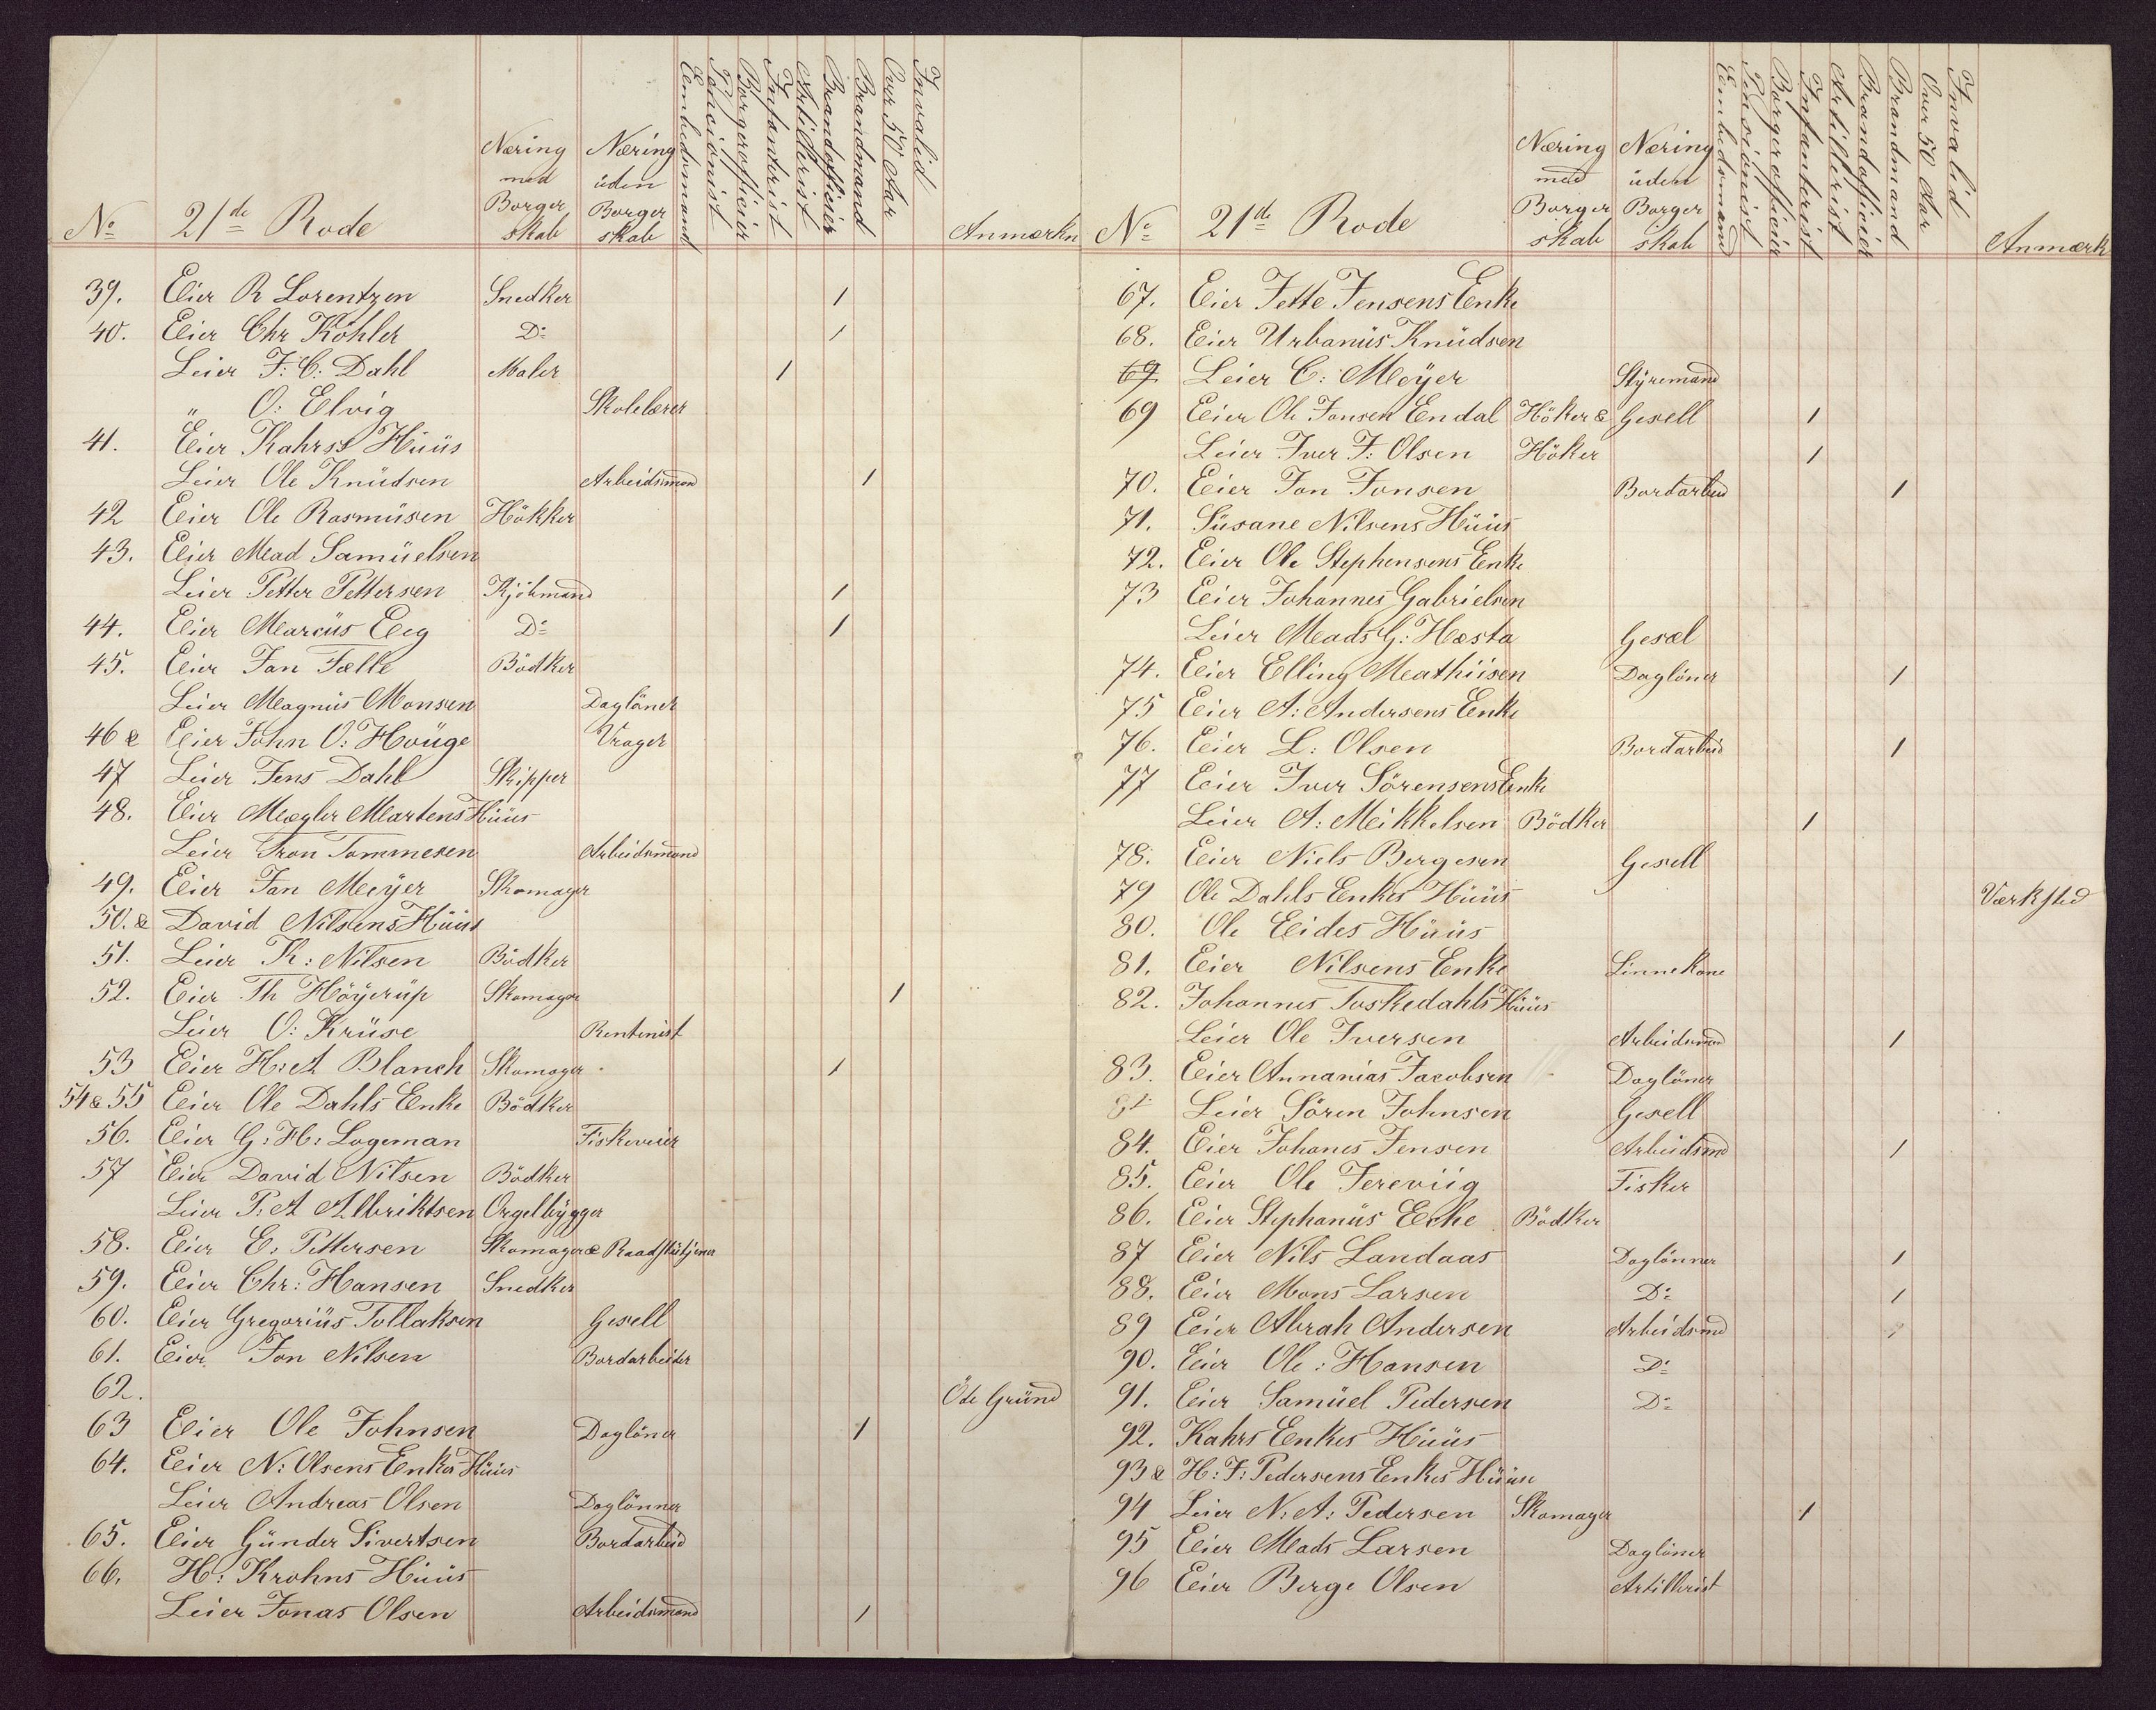 No 21de Rode Næring med Borger skab Næring uden Borger skab Embedsmand Pencionist Borgerofficier Infanterist Artillerist Brandofficier Brandmand Over 50 Aar Invalid Anmærkn
39. Eier R Lorentzen Snedker 1
40. Eier Chr Köhler Do 1
Leier F: C: Dahl Maler 1
" O: Elvig Skolelærer
41. Eier Kahrss Huus
Leier Ole Knudsen Arbeidsmand 1
42 Eier Ole Rasmusen Hökker
43. Eier Mad Samuelsen
Leier Petter Pettersen Kjöbmand 1
44. Eier Marcus Eeg Do 1
45. Eier Jan Fælle Bödker
Leier Magnus Monsen Daglöner
46 & Eier John O: Houge Vrager
47 Leier Jens Dahl Skipper
48. Eier Mægler Martens Huus
Leier Tron Tommesen Arbeidsmand
49. Eier Jan Meyer Skomager
50. & David Nilsens Huus
51. Leier K: Nilsen Bödker
52. Eier Th Höyerup Skomager 1
Leier O: Kruse Rentenist
53 Eier H: A Blanch Skomager 1
54 & 55 Eier Ole Dahls Enke Bödker
56. Eier G: H: Logeman
57 Eier David Nilsen Bödker
Leier P: A Albriktsen Orgelbygger
58. Eier E: Pettersen Skomager & Raadstutjener
59. Eier Chr: Hansen Snedker
60. Eier Gregorius Tollaksen Gesell
61. Eier Jon Nilsen Bordarbeider
62. Öde Grund
63 Eier Ole Johnsen Daglöner 1
64. Eier N: Olsens Enkes Huus
Leier Andreas Olsen Daglönner
65. Eier Gunder Sivertsen Bordarbeid
66. H: Krohns Huus
Leier Jonas Olsen Arbeidsmand 1
No 21de Rode Næring med Borger skab Næring uden Borger skab Embedsmand Pensionist Borgerofficier Infanterist Artillerist Brandofficier Brandmand Over 50 Aar Invalid Anmærk
67. Eier Jette Jensens Enke
68. Eier Urbanus Knudsen
69 Leier C: Meyer Styremand
69 Eier Ole Jonsen Endal Höker & Gesell 1
Leier Iver J: Olsen Höker 1
70. Eier Jon Jonsen Bordarbeid 1
71. Susane Nilsens Huus
72. Eier Ole Stephensens Enke
73 Eier Johannes Gabrielsen
Leier Mads G: Hæsta Gesæl
74. Eier Elling Mathiisen Daglöner 1
75 Eier A: Andersens Enke
76. Eier L: Olsen Bordarbeid 1
77 Eier Iver Sörensens Enke
Leier A: Meikkelsen Bödker 1
78. Eier Niels Bergesen Gesell
79 Ole Dahls Enkes Huus Værksted
80. Ole Eides Huus
81. Eier Nilsens Enke Linnekone
82. Johannes Toskedahls Huus
Leier Ole Iversen Arbeidsmand 1
83. Eier Annanias Jacobsen Daglöner
Leier Sören Johnsen Gesell
84. Eier Johanes Jensen Arbeidsmd 1
85. Eier Ole Jereviig Fisker
86. Eier Stephanus Eche Bödker
87 Eier Nils Landaas Daglönner 1
88. Eier Mons Larsen Do 1
89 Eier Abrah Andersen Arbeidsmd
90. Eier Ole: Hansen Do
91. Eier Samuel Pedersen Do
92. Kahrs Enkes Huus
93 & H: F: Pedersens Enkes Huus
94 Leier N: A: Pedersen Skomager 1
95 Eier Mads Larsen Daglöner
96 Eier Berge Olsen Artillerist